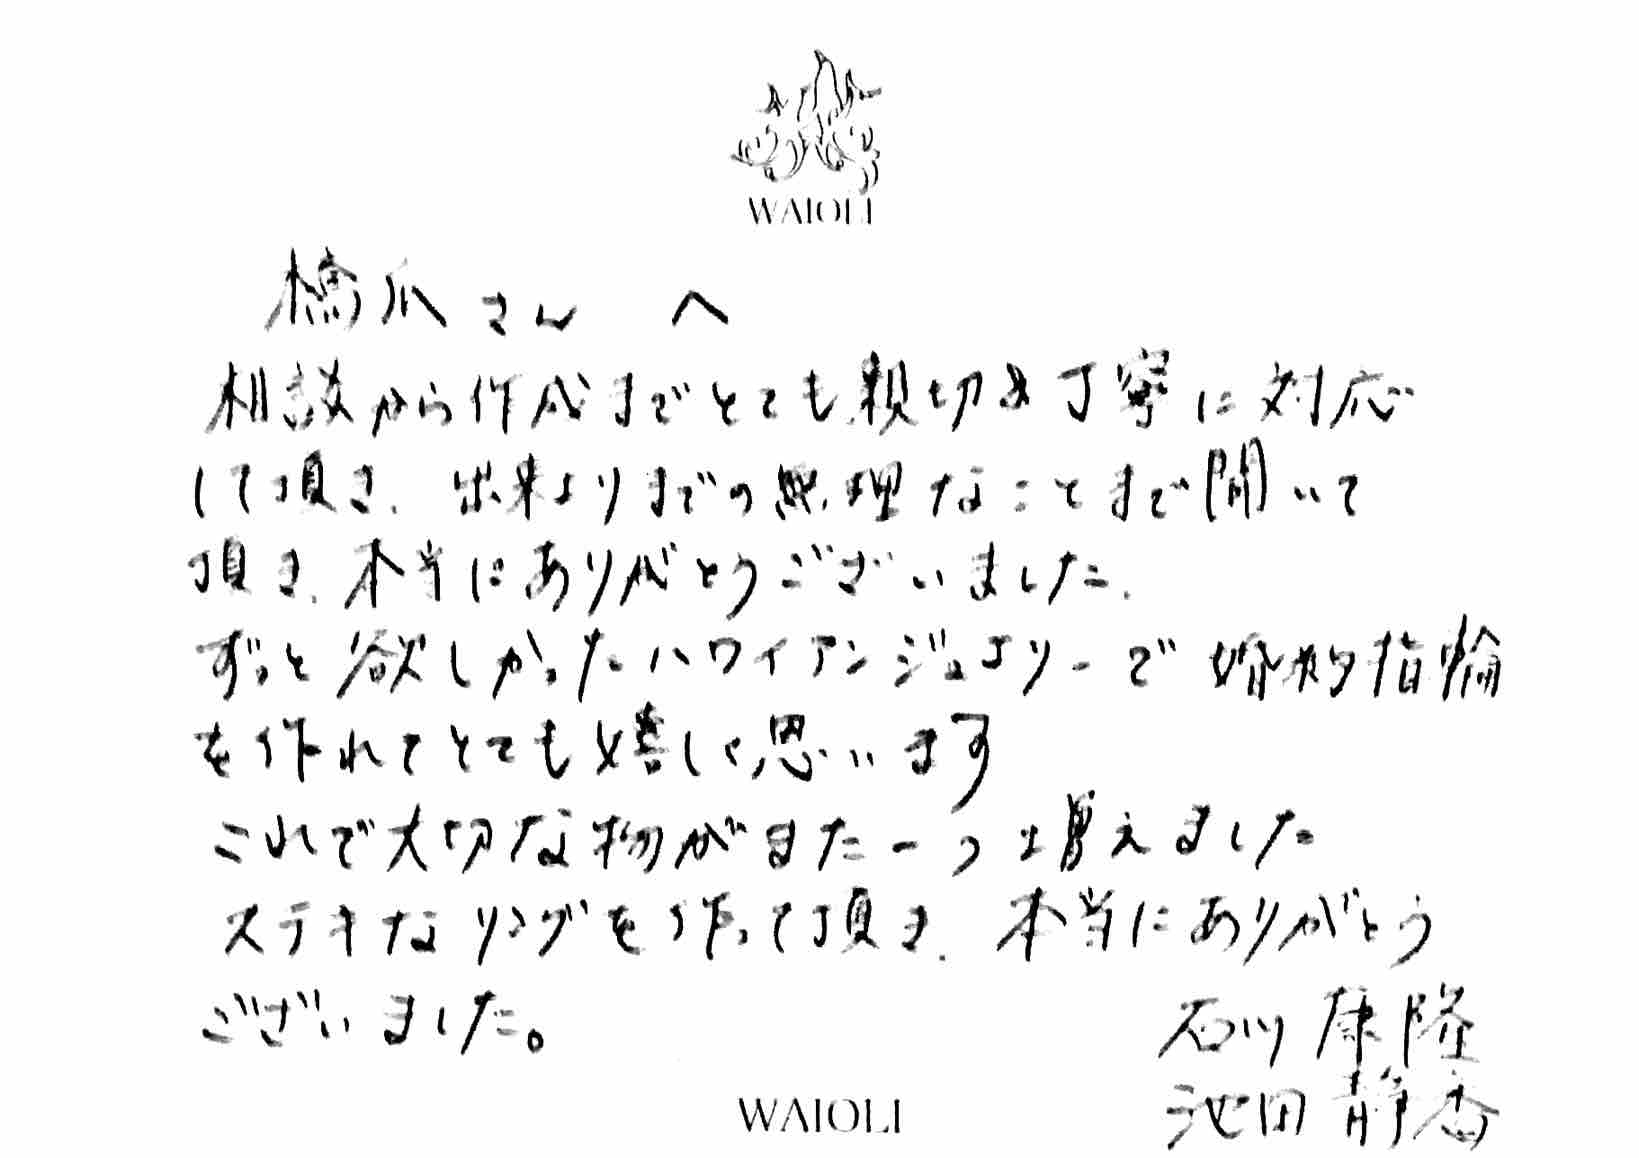 WAIOLI
橋爪さん へ
相談から作成までとても親切で丁寧に対応
して頂き、出来上りまでの無理なことまで聞いて
頂き、本当にありがとうございました。
ずっと欲しかったハワイアンジュエリーで婚約指輪
を作れてとても嬉しく思います
これで大切な物がまた一つ増えました
ステキなリングを作って頂き、本当にありがとう
ございました。
石川 康隆
池田 静香
WAIOLI